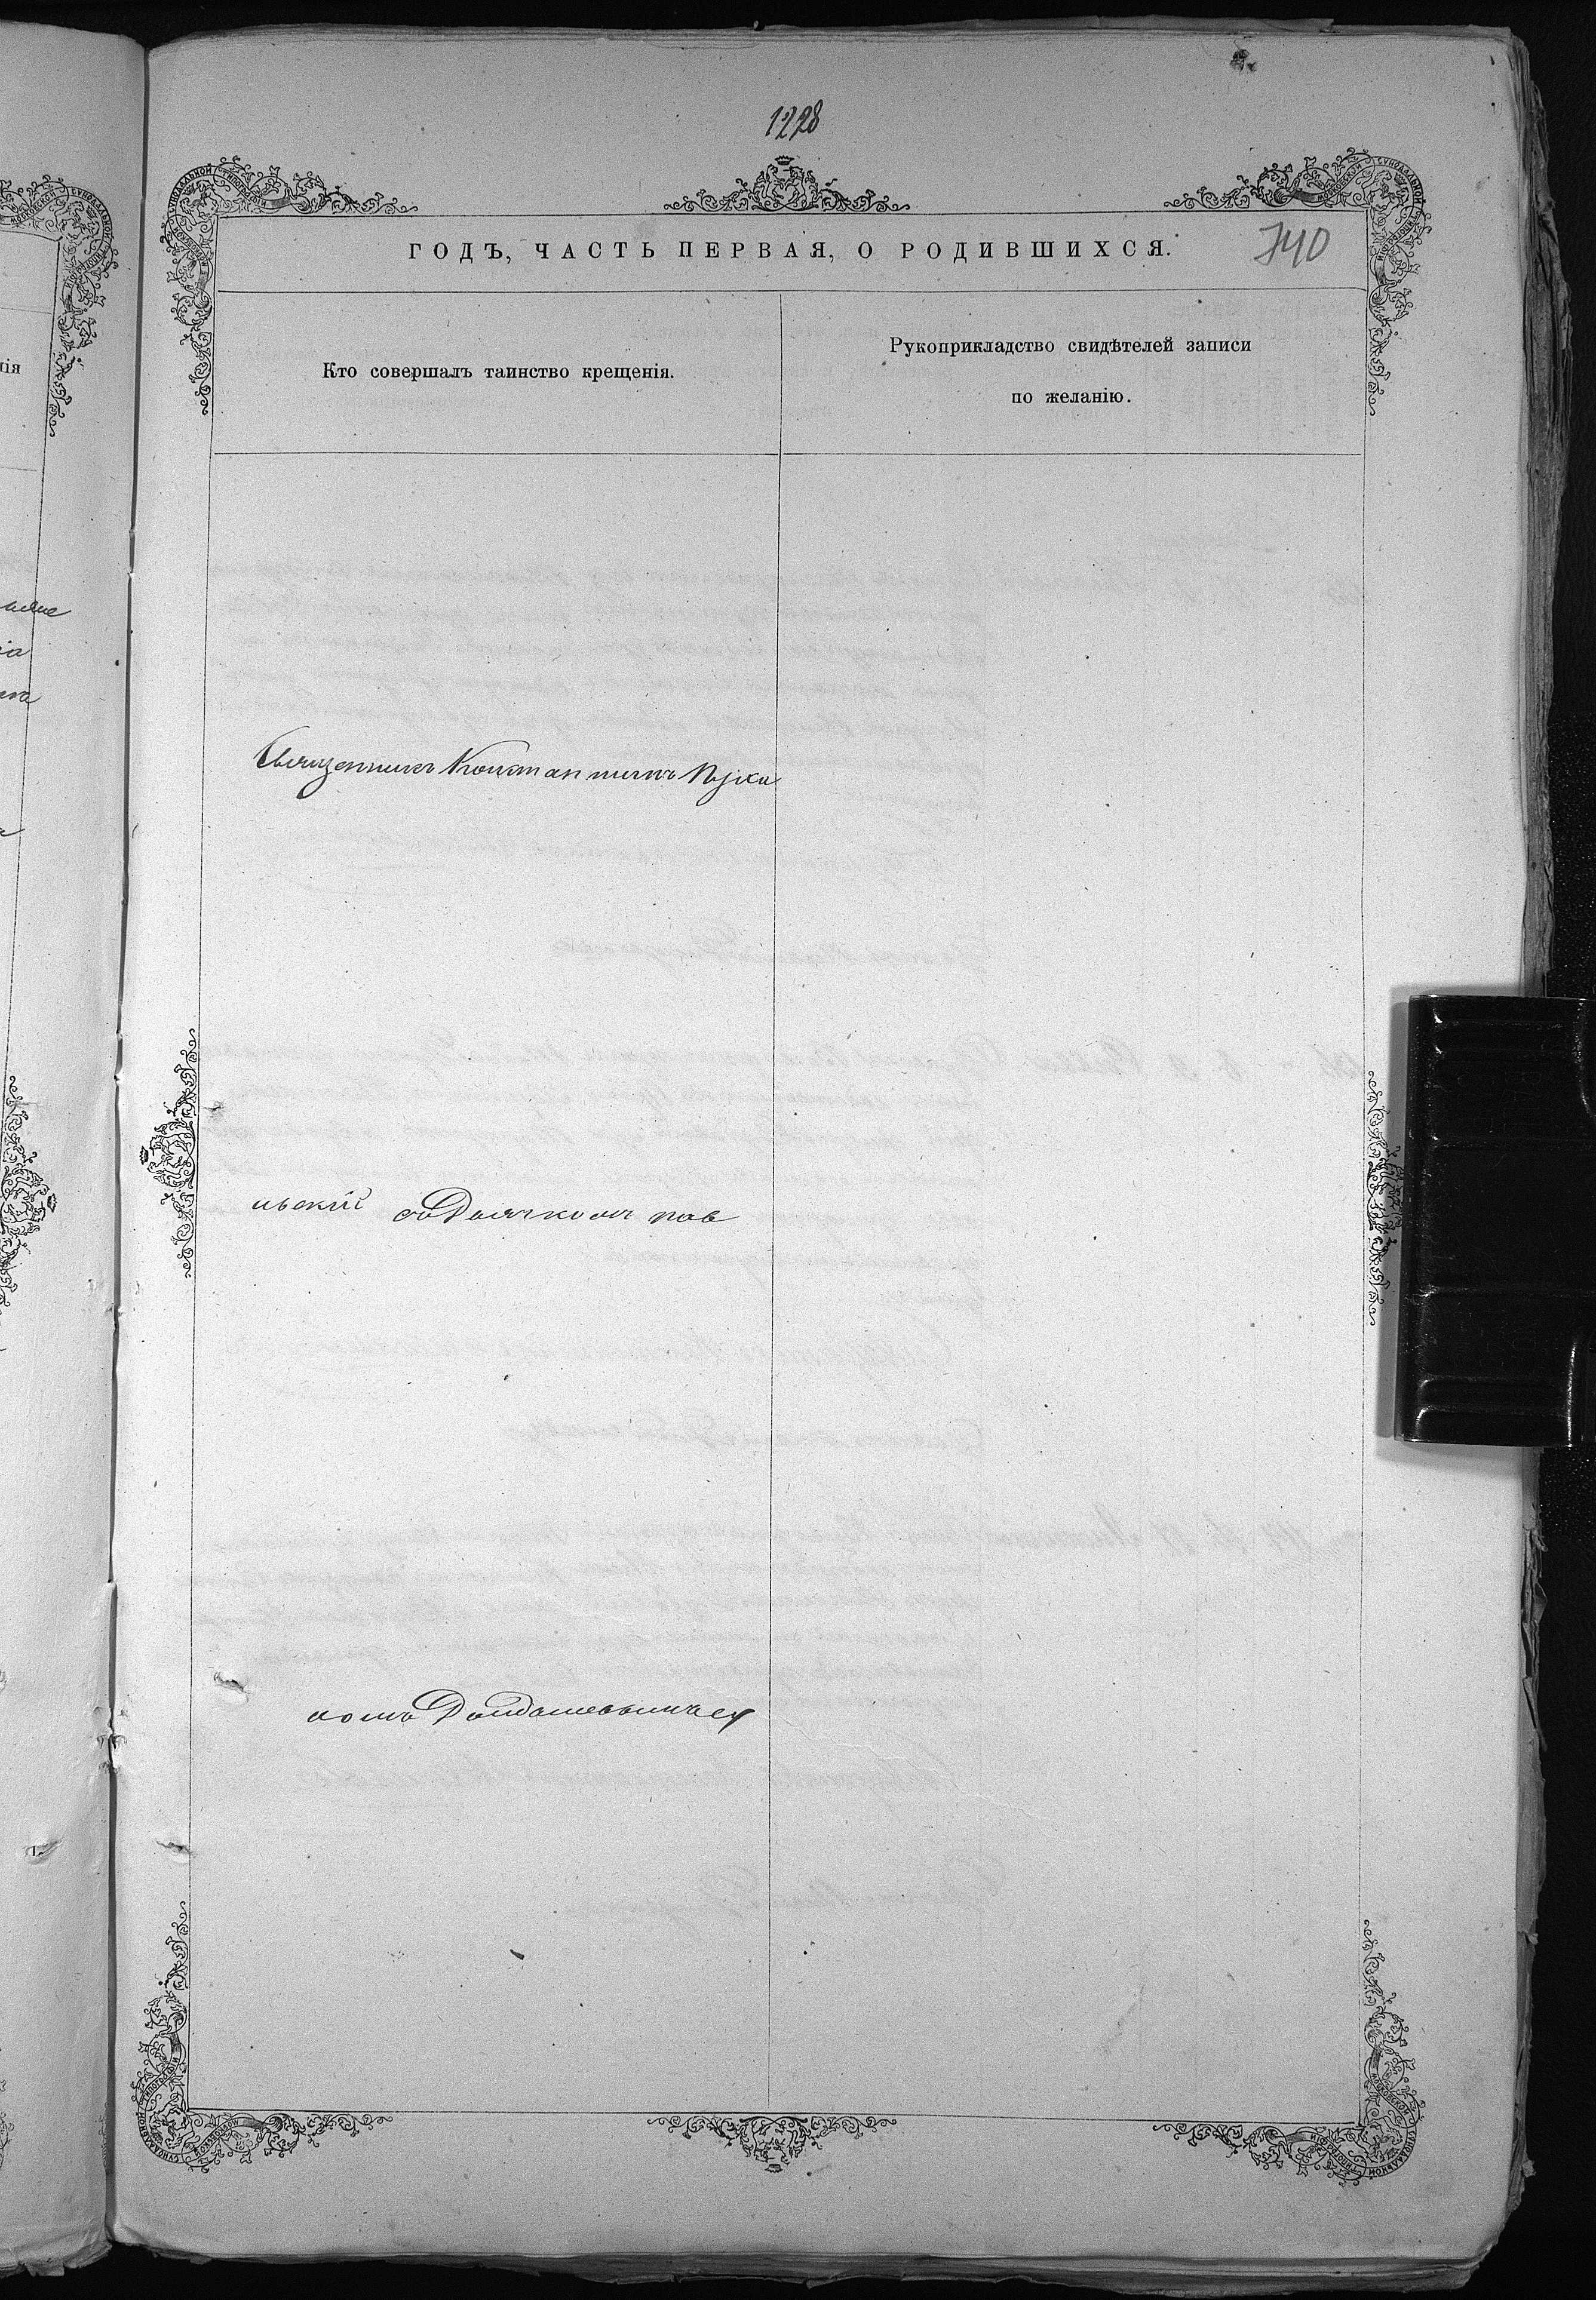 1228
ГОДЪ, ЧАСТЬ ПЕРВАЯ, О РОДИВШИХСЯ.
740
Кто совершалъ таинство крещенія.
Рукоприкладство свидѣтелей записи
по желанію.
Священникъ Константинъ
льскій съ Дьячкомъ пав
ломъ